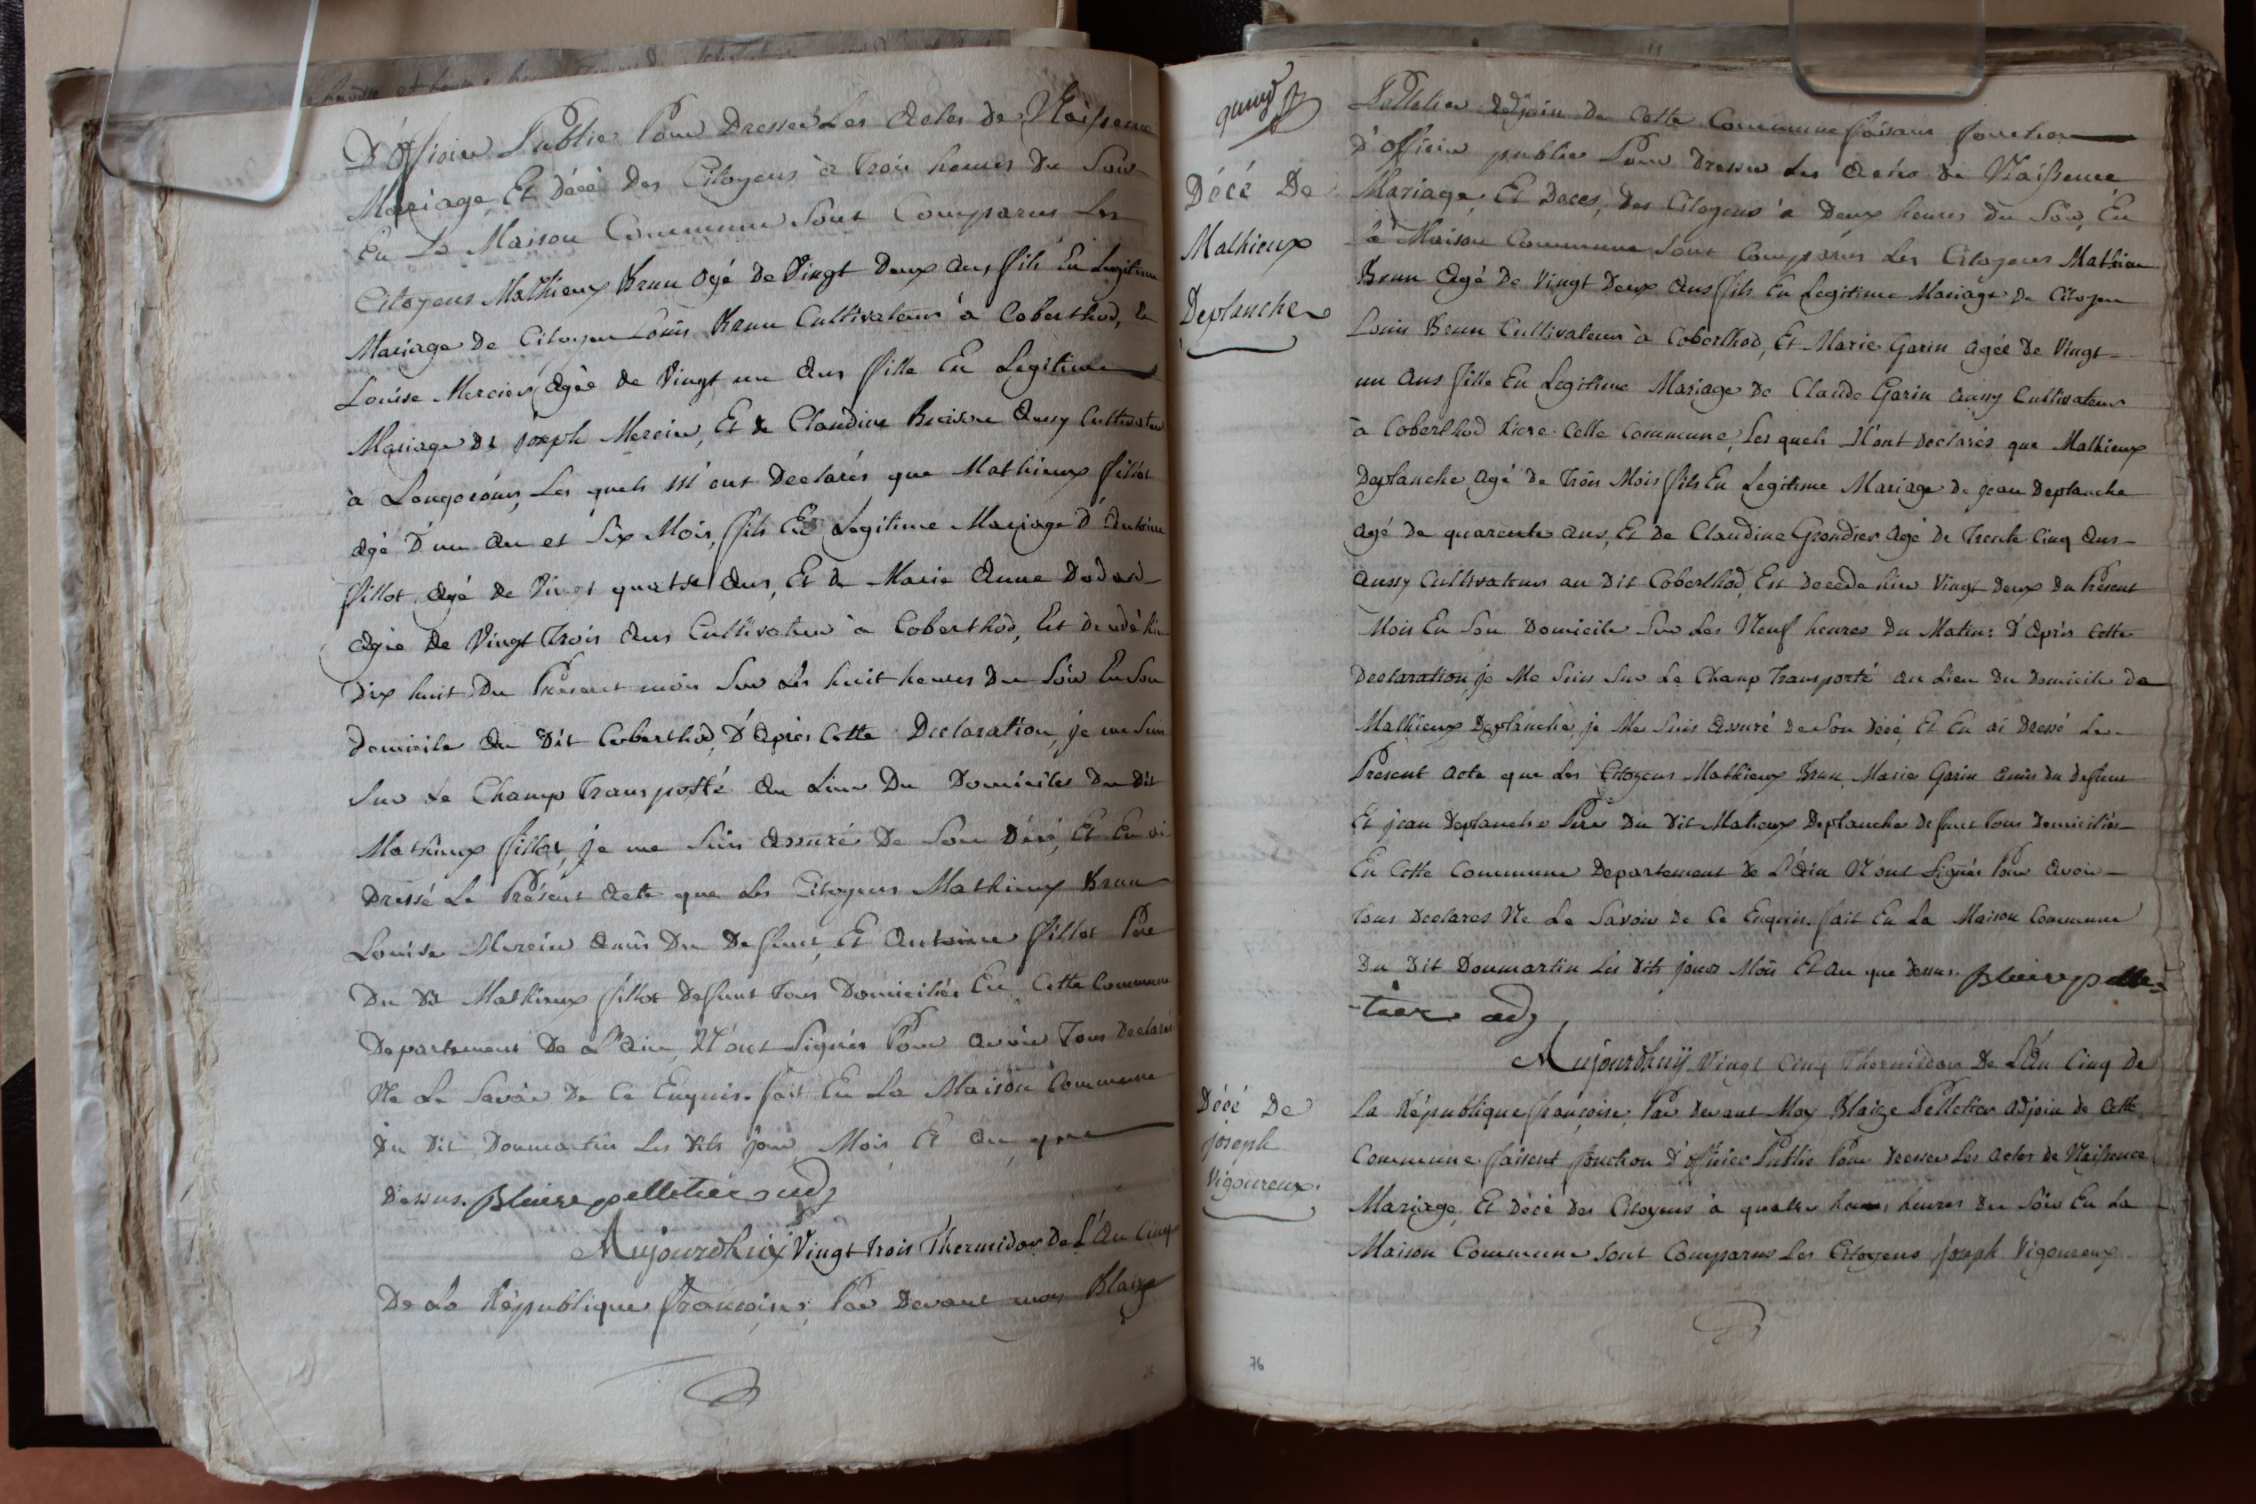 D'officier Public Pour Dresser Les Actes de Naissence
Mariage Et Décé Des Citoyens à Trois heures Du Soir
En La Maison Commune Sont Comparus Les
Citoyens Mathieux Brun agé de Vingt Deux ans fils En Legitime
Mariage de Citoyen Louis Brun Cultivateur à Coberthod, Et
Louise Mercier Agée de Vingt un Ans fille En Legitime
Mariage De joseph Mercier, Et de Claudine Aussy Cultivateur
à Les quels M'ont Declarés que Mathieux fillot
agé D'un an et Six Mois, fils En Legitime Mariage D'Antoine
fillot agé de Vingt quatre Ans, Et de Marie Anne
Agée de Vingt Trois Ans Cultivateur à Coberthod, Est decedé hier
Dix huit Du Present mois Sur Les huit heures Du Soir En Son
Domicile Au Dit Coberthod, D'après Cette Declaration, je me Suis
Sur Le Champ Transporté Au Lieu Du Domicile Du Dit
Mathieux fillot, je me Suis Assuré De Son Décé, Et En ai
Dressé Le Présent Acte que Les Citoyens Mathieux Brun
Louise Mercier Amis Du Defunt, Et Antoine fillot Père
Du Dit Mathieux fillot Defunt Tous Domiciliés En Cette Commune
Departement De L'Ain, N'ont Signés Pour Avoir Tous Declarés
Ne Le Savoir De Ce Enquis. fait En La Maison Commune
Du Dit Donmartin Les Dits jour Mois Et An que
Dessus. Blaise pelletier adj
Aujourdhuÿ Vingt trois Thermidor De L'An Cinq
De La République françoise; Par Devant moy Blaize
Décé De
Mathieux
Deplanche
Pelletier Adjoin de Cette Commune faisant fonction
D'officier public Pour Dresser Les Actes de Naissence
Mariage, Et Deces, Des Citoyens à Deux heures du Soir, En
La Maison Commune Sont Comparus Les Citoyens Mathieu
Brun Agé De Vingt Deux Ans fils En Legitime Mariage De Citoyen
Louis Brun Cultivateur à Coberthod, Et Marie Garin Agée De Vingt
un Ans fille En Legitime Mariage De Claude Garin aussy Cultivateur
à Coberthod Riere Cette Commune, Les quels M'ont Declarés que Mathieux
Deplanche Agé De Trois Mois fils En Legitime Mariage De jean Deplanche
Agé De quarente Ans, Et De Claudine Grondier Agé De Trente Cinq Ans
Aussy Cultivateur au Dit Coberthod, Est Decede hier Vingt Deux du Présent
Mois En Son Domicile Sur Les Neuf heures Du Matin: D'Après Cette
Declaration, je Me Suis Sur Le Champ Transporté au Lieu Du Domicile De
Mathieux Deplanche, je Me Suis Assuré de Son Décé, Et En ai Dressé Le
Present Acte que Les Citoyens Mathieux Brun, Marie Garin amis du Defunt
Et jean Deplanche Père Du Dit Matieux Deplanche Defunt Tous Domiciliés
En Cette Commune Departement De L'Ain N'ont Signés Pour Avoir
Tous Declares Ne Le Savoir De Ce Enquis. fait En La Maison Commune
Du Dit Donmartin Les Dits jour Mois Et An que Dessus. Blaise pelle-
-tier adj
Décé De
joseph
Vigoureux.
Aujourdhuÿ Vingt Cinq Thermidor De L'An Cinq De
La République françoise, Par Devant Moy Blaize Pelletier Adjoin de Cette
Commune faisent fonction D'officier Public Pour Dresser Les Actes de Naissence
Mariage, Et Décé Des Citoyens à quatre heures du Soir En La
Maison Commune Sont Comparus Les Citoyens joseph Vigoureux
76